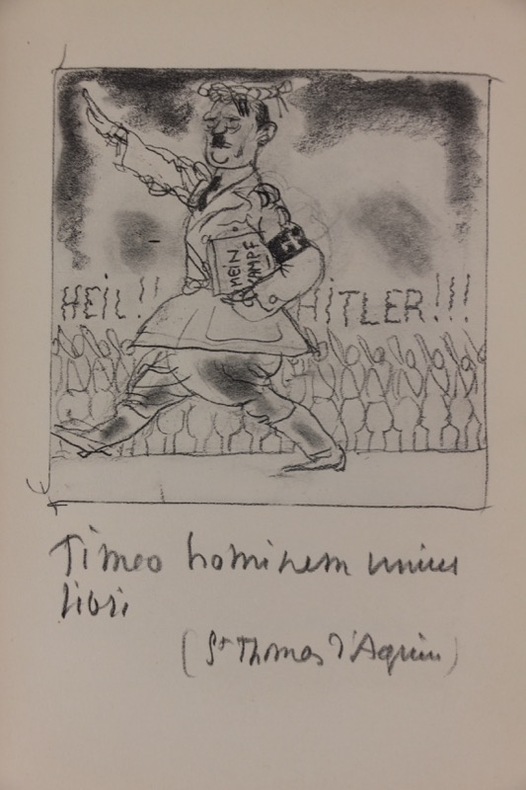 HEIL!! HITLER!!!
MEIN
KAMPF
Timeo hominem unius
libri
(St Thomas d'Aquin)